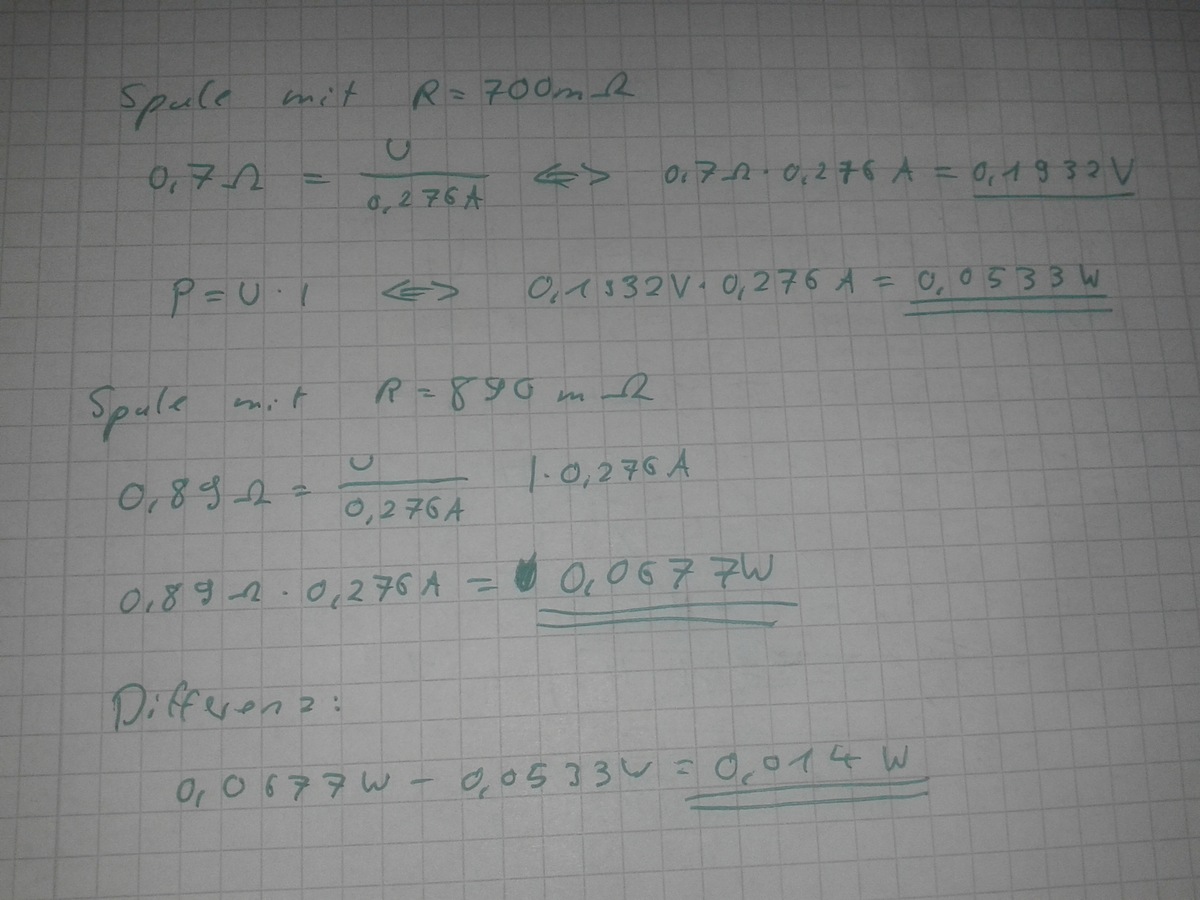 Spule mit R = 700mΩ
0,7Ω = U / 0,276A <=> 0,7Ω · 0,276 A = 0,1932V
P = U · I <=> 0,1932V · 0,276 A = 0,0533 W
Spule mit R = 890 mΩ
0,89Ω = U / 0,276A | · 0,276 A
0,89Ω · 0,276A = 0,0677W
Differenz:
0,0677W – 0,0533W = 0,014 W